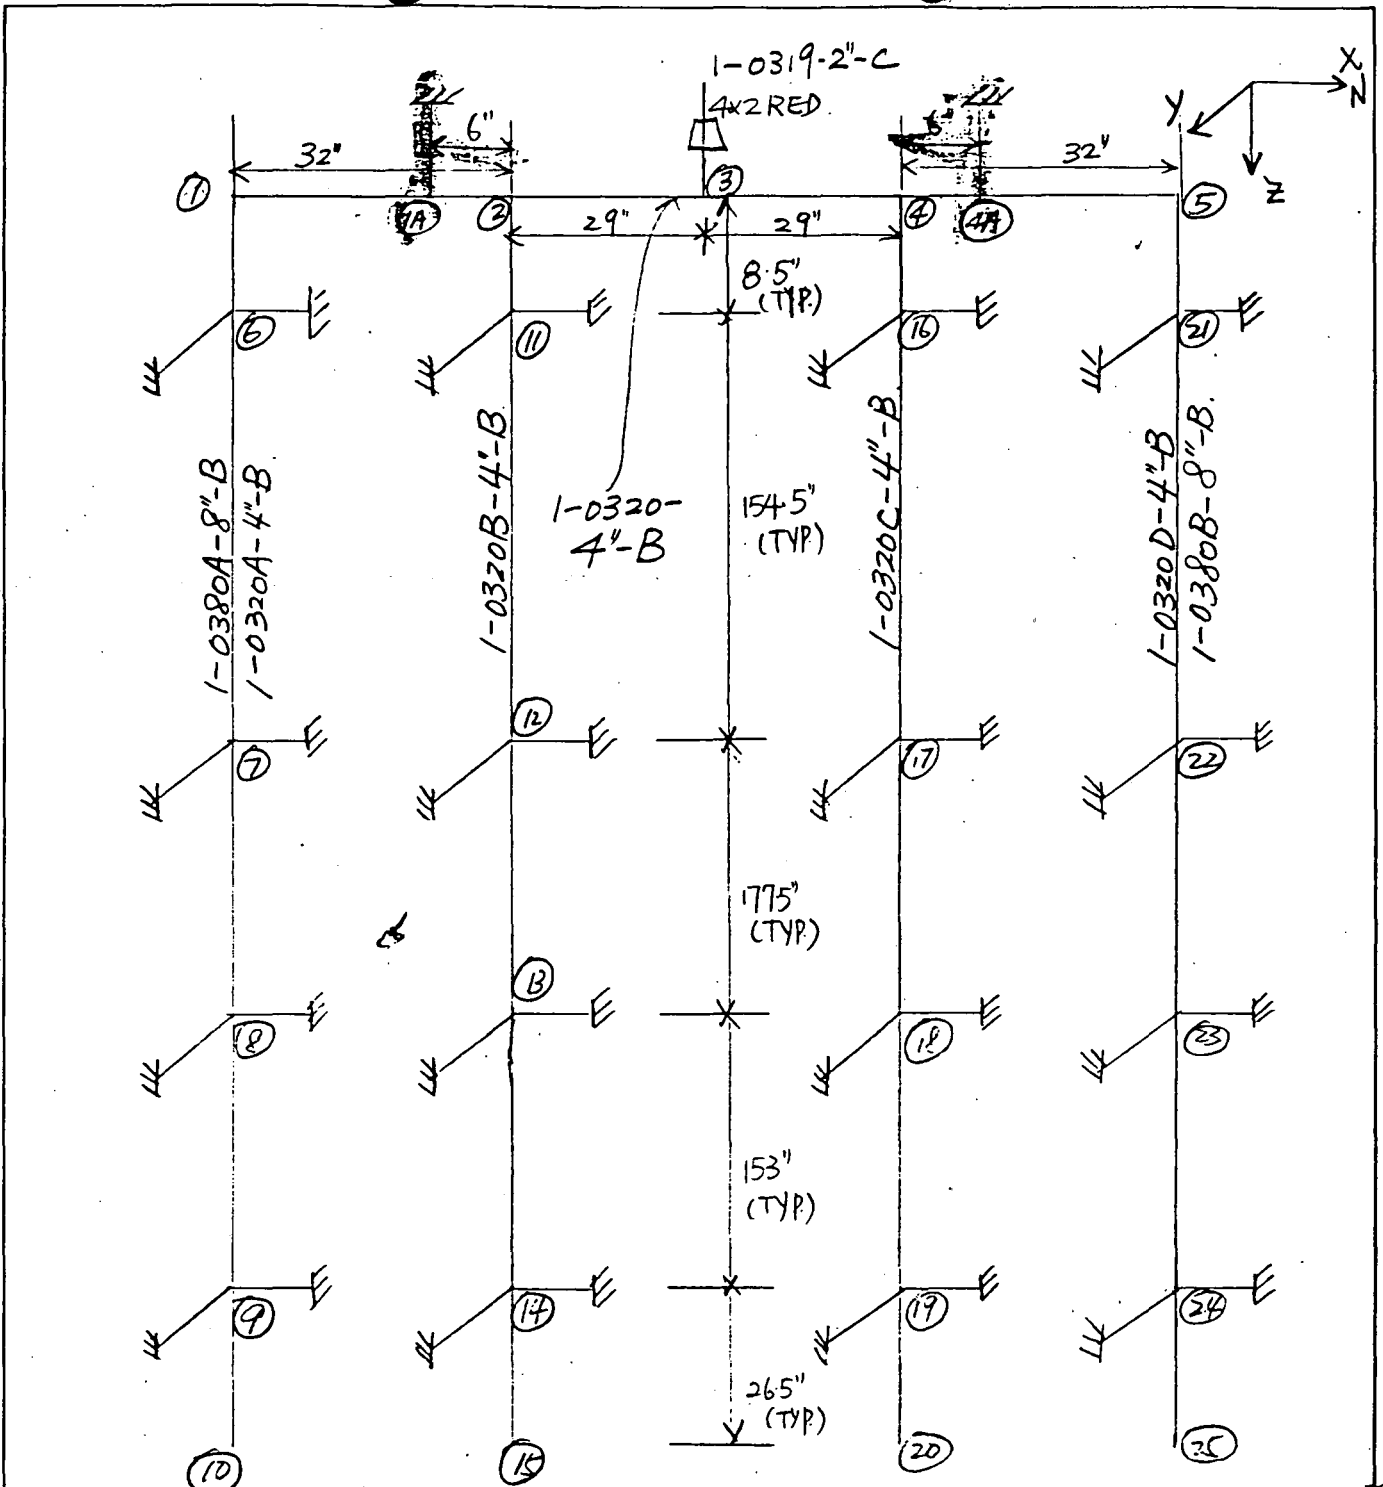 1-0319-2"-C
4x2 RED.
X
N
Y
Z
6"
6"
32"
32"
1
1A
2
3
4
4A
5
29"
29"
8.5"
(TYP.)
6
11
16
21
1-0380A-8"-B
1-0320A-4"-B
1-0320B-4"-B
1-0320-
4"-B
154.5"
(TYP)
1-0320C-4"-B
1-0320D-4"-B
1-0380B-8"-B.
12
7
17
22
177.5"
(TYP.)
13
8
18
23
153"
(TYP.)
9
14
19
24
26.5"
(TYP.)
10
15
20
25